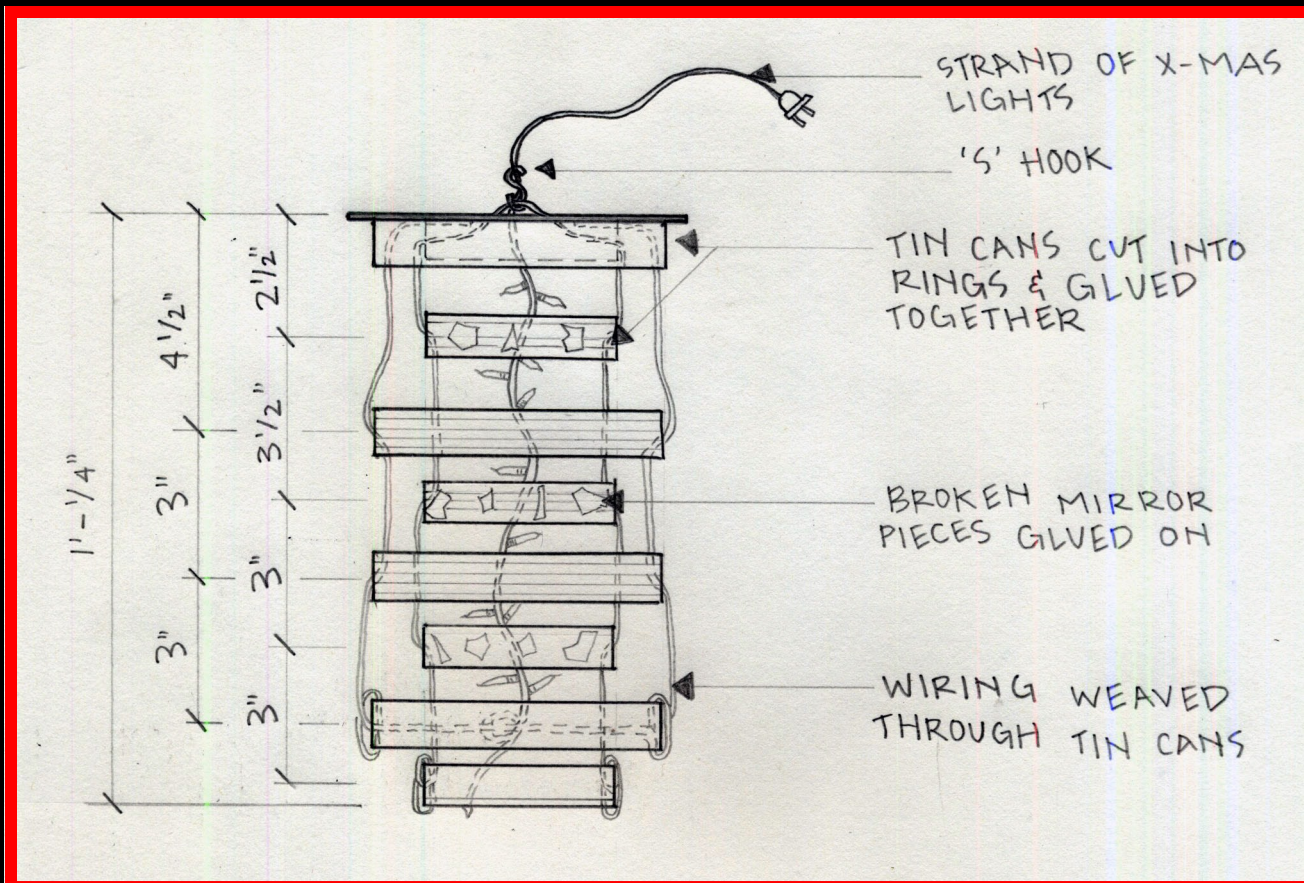 STRAND OF X-MAS
LIGHTS
'S' HOOK
TIN CANS CUT INTO
RINGS & GLUED
TOGETHER
BROKEN MIRROR
PIECES GLUED ON
WIRING WEAVED
THROUGH TIN CANS
1'-1/4"
4 1/2"
3"
3"
2 1/2"
3 1/2"
3"
3"